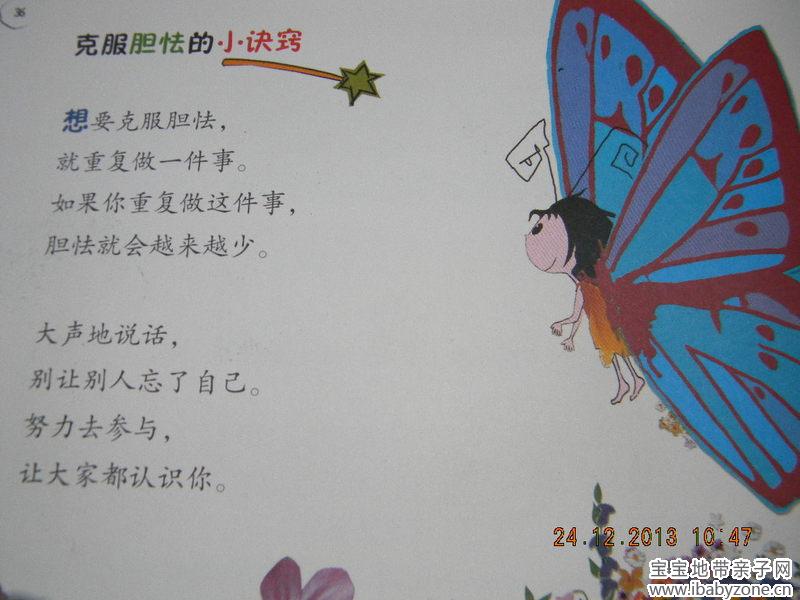 36
克服胆怯的小诀窍
想要克服胆怯，
就重复做一件事。
如果你重复做这件事，
胆怯就会越来越少。
大声地说话，
别让别人忘了自己。
努力去参与，
让大家都认识你。
24.12.2013 10:47
宝宝地带亲子网
www.ibabyzone.cn